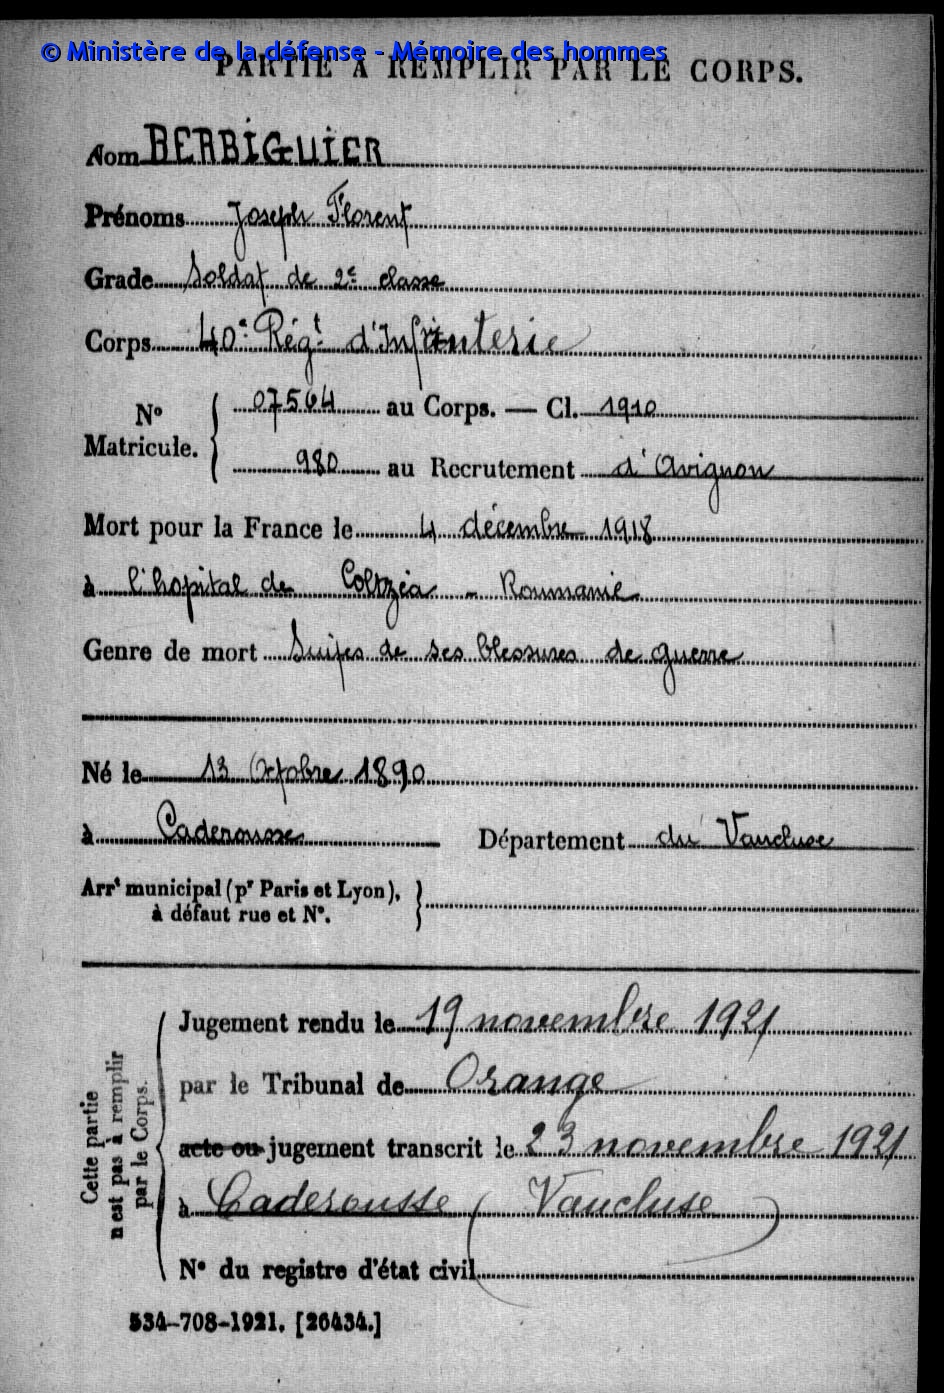 © Ministère de la défense - Mémoire des hommes
PARTIE À REMPLIR PAR LE CORPS.
Nom BERBIGUIER
Prénoms Joseph Florent
Grade Soldat de 2e classe
Corps 40e Régt d'Infanterie
No Matricule. { 07564 au Corps. — Cl. 1910
980 au Recrutement d'Avignon
Mort pour la France le 4 décembre 1918
à l'hopital de Coltzéa - Roumanie
Genre de mort Suites de ses blessures de guerre
Né le 13 Octobre 1890
à Caderousse Département du Vaucluse
Arrt municipal (pr Paris et Lyon),
à défaut rue et No.
Cette partie
n'est pas à remplir
par le Corps.
Jugement rendu le 19 novembre 1921
par le Tribunal de Orange
acte ou jugement transcrit le 23 novembre 1921
à Caderousse (Vaucluse)
No du registre d'état civil
534-708-1921. [26434.]